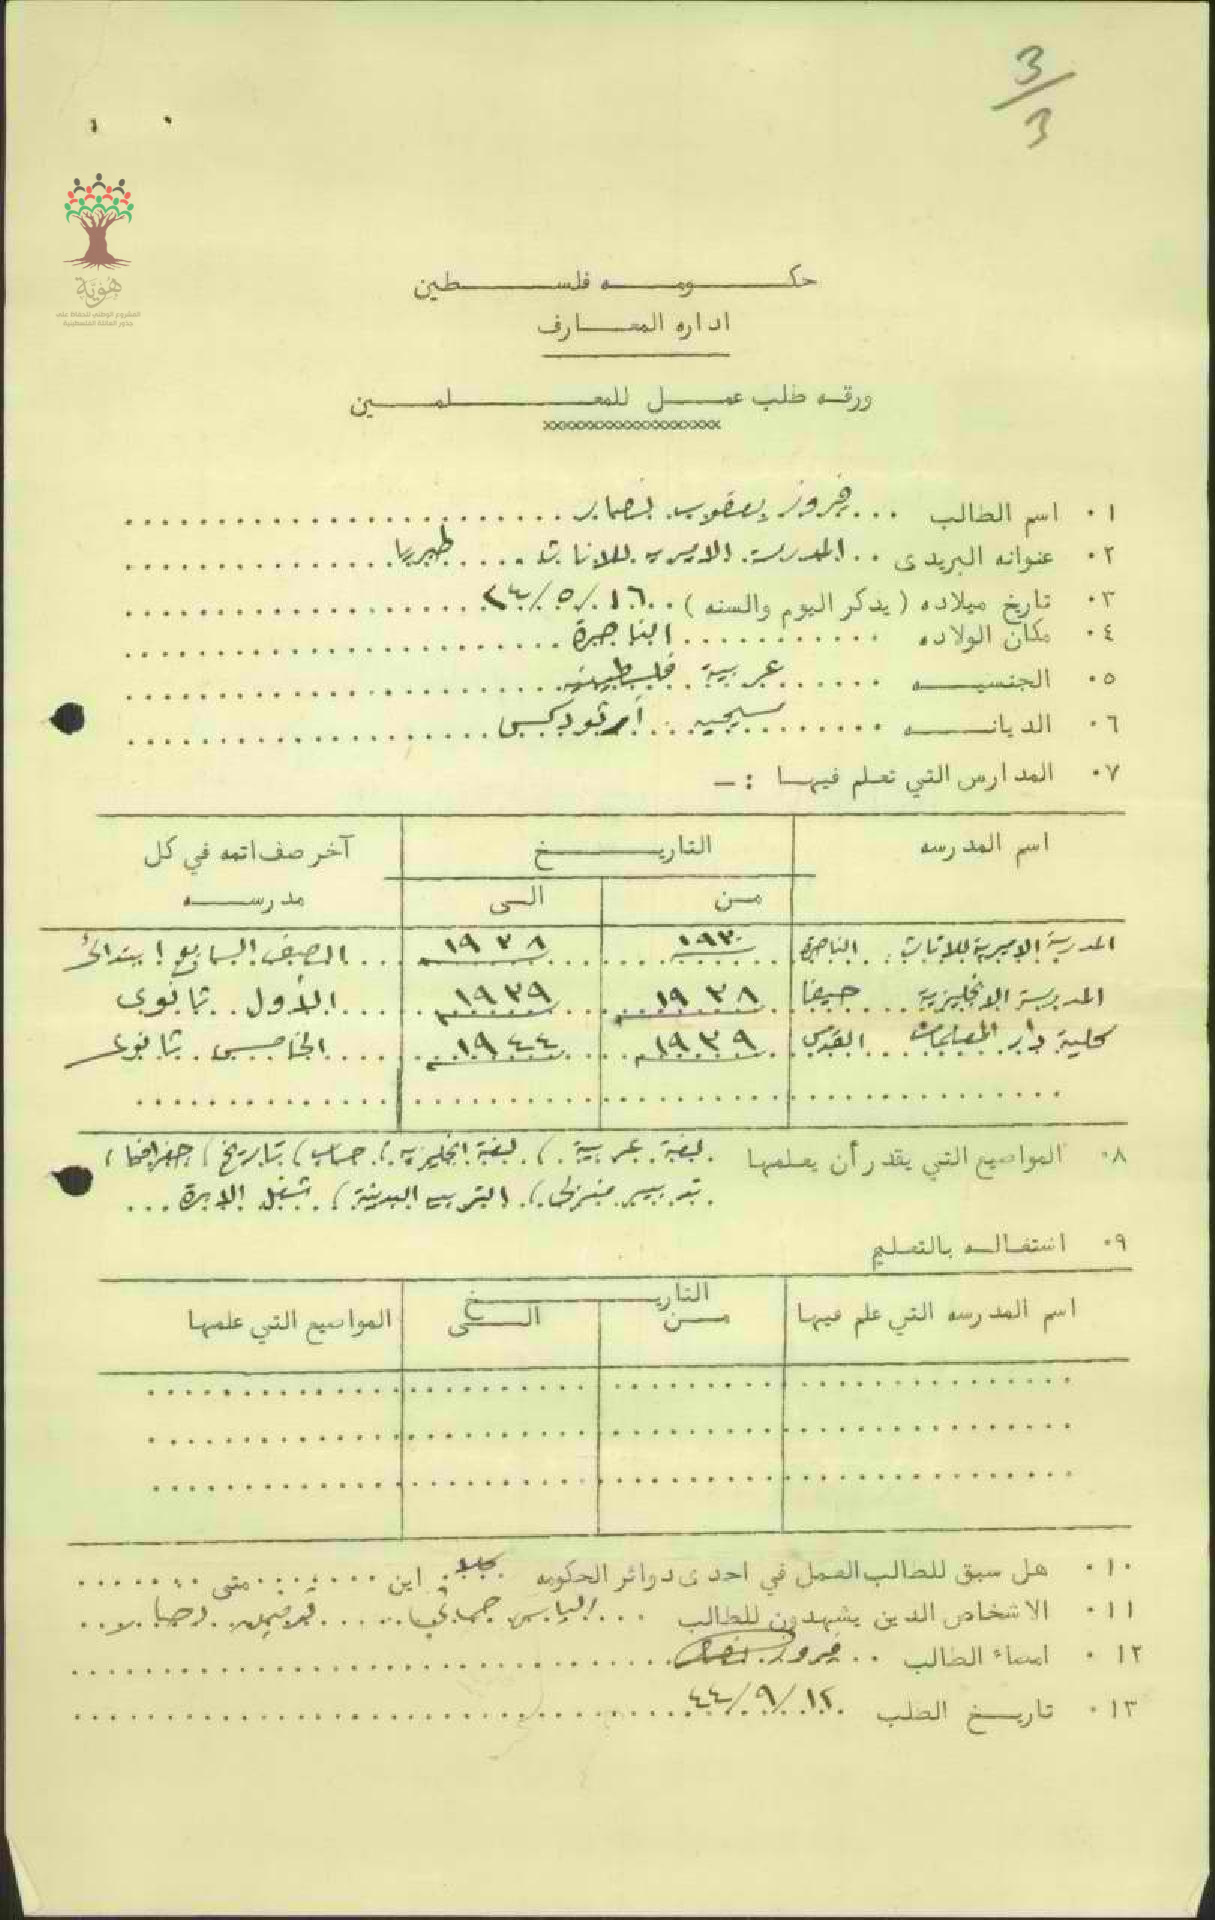 3/3
هوية
المشروع الوطني للحفاظ على
جذور العائلة الفلسطينية
حكومه فلسطين
اداره المعارف
ورقه طلب عمل للمعلمين
xxxxxxxxxxxxxxxxxxxx
١٠ اسم الطالب ... فيروز يعقوب نصار
٢٠ عنوانه البريدى .. المدرسة الاميريه للاناث .... طبريا
٣٠ تاريخ ميلاده (يذكر اليوم والسنه) ١٦/٥/٢٤
٤٠ مكان الولاده ........ الناصرة
٥٠ الجنسيه ...... عربية فلسطينيه
٦٠ الديانه ........ مسيحيه .. أرثوذكس
٧٠ المدارس التي تعلم فيها :-
اسم المدرسه التاريخ آخر صف اتمه في كل
من الى مدرسه
المدرسة الاميرية للاناث .. الناصرة ١٩٣٠ ١٩٣٨ الصف السابع ابتدائي
المدرسة الانجليزية .... حيفا ١٩٣٨ ١٩٣٩ الأول .. ثانوى
كلية دار المعلمات .. القدس ١٩٣٩ ١٩٤٤ الخامس . ثانوى
٨٠ المواضيع التي يقدر أن يعلمها لغة عربية ، لغة انجليزيه ، حساب ، تاريخ ، جغرافيا ،
تدبير منزلى ، التربيه البدنية ، شغل الابرة ...
٩٠ اشتغاله بالتعليم
اسم المدرسه التي علم فيها التاريخ المواضيع التي علمها
من الى
١٠٠ هل سبق للطالب العمل في احدى دوائر الحكومه كلا . اين ........ متى ........
١١٠ الاشخاص الذين يشهدون للطالب ... الياس ........
١٢٠ امضاء الطالب .. فيروز نصار
١٣٠ تاريخ الطلب ١٢/٩/٤٤